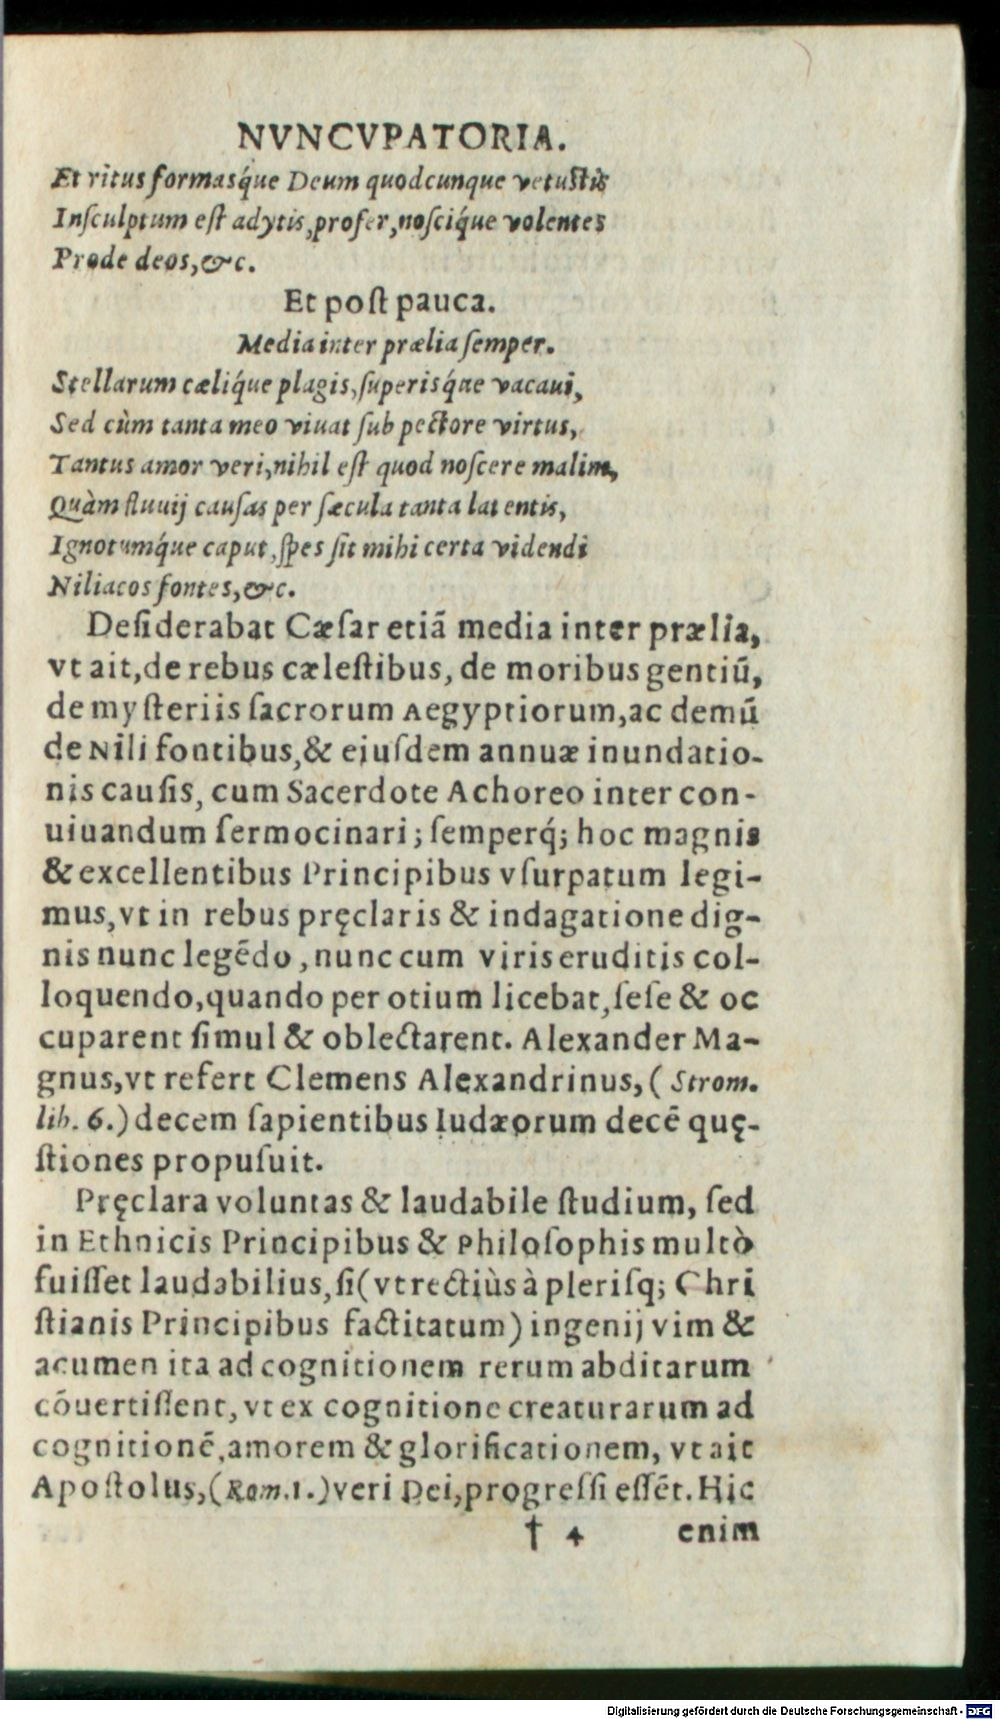 NVNCVPATORIA.
Et ritus formasq́ue Deum quodcunque vetustis
Inſculptum eſt adytis,profer,noſciq́ue volentes
Prode deos,&c.
Et poſt pauca.
Media inter prælia ſemper.
Stellarum cæliq́ue plagis,ſuperisq́ue vacaui,
Sed cùm tanta meo viuat ſub pectore virtus,
Tantus amor veri,nihil eſt quod noſcere malim,
Quàm fluuij cauſas per ſæcula tanta latentis,
Ignotumq́ue caput,ſpes ſit mihi certa videndi
Niliacos fontes,&c.
Deſiderabat Cæſar etiā media inter prælia,
vt ait,de rebus cæleſtibus, de moribus gentiū,
de myſteriis ſacrorum Aegyptiorum,ac demū
de Nili fontibus,& ejuſdem annuæ inundatio-
nis cauſis, cum Sacerdote Achoreo inter con-
uiuandum ſermocinari; ſemperq́; hoc magnis
& excellentibus Principibus vſurpatum legi-
mus,vt in rebus pręclaris & indagatione dig-
nis nunc legēdo, nunc cum viris eruditis col-
loquendo,quando per otium licebat,ſeſe & oc
cuparent ſimul & oblectarent. Alexander Ma-
gnus,vt refert Clemens Alexandrinus, (Strom.
lib. 6.) decem ſapientibus Iudæorum decē quę-
ſtiones propuſuit.
Pręclara voluntas & laudabile ſtudium, ſed
in Ethnicis Principibus & Philoſophis multò
fuiſſet laudabilius, ſi (vt rectiùs à pleriſq; Chri
ſtianis Principibus factitatum) ingenij vim &
acumen ita ad cognitionem rerum abditarum
cōuertiſſent, vt ex cognitione creaturarum ad
cognitionē,amorem & glorificationem, vt ait
Apoſtolus,(Rom.1.)veri Dei,progreſſi eſſēt. Hic
† 4 enim
Digitalisierung gefördert durch die Deutsche Forschungsgemeinschaft - DFG